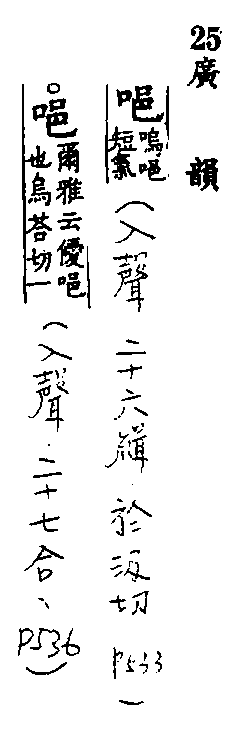 25廣韻
唈嗚唈短氣(入聲.二十六緝.於汲切P533)
唈爾雅云僾唈也烏荅切一(入聲.二十七合、P536)